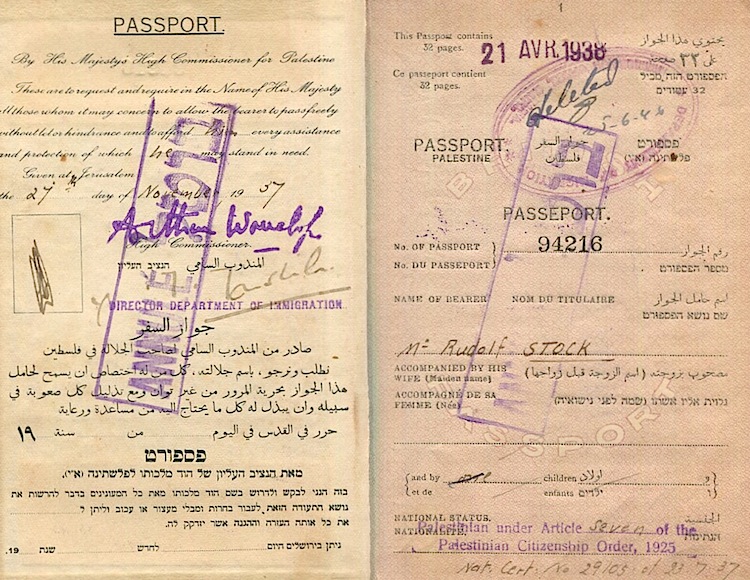 PASSPORT.
By His Majesty's High Commissioner for Palestine
These are to request and require in the Name of His Majesty
all those whom it may concern to allow the bearer to pass freely
without let or hindrance and to afford him every assistance
and protection of which he may stand in need.
Given at Jerusalem
the 27th day of November 1937
High Commissioner.
المندوب السامي הנציב העליון
DIRECTOR DEPARTMENT OF IMMIGRATION.
جواز السفر
صادر من المندوب السامي لصاحب الجلالة في فلسطين
نطلب ونرجو، باسم جلالته، كل من له اختصاص ان يسمح لحامل
هذا الجواز بحرية المرور من غير توان ومع تذليل كل صعوبة في
سبيله وان يبذل له كل ما يحتاج اليه من مساعدة ورعاية
حرر في القدس في اليوم من سنة ١٩
פספורט
מאת הנציב העליון של הוד מלכותו לפלשתינה (א״י).
בזה הנני לבקש ולדרוש בשם הוד מלכותו מאת כל המעונינים בדבר להרשות את
נושא התעודה הזאת לעבור בחרות ומבלי מעצור או עכוב וליתן ל
את כל אותה העזרה וההגנה אשר יזדקק לה.
ניתן בירושלים היום לחדש שנת 19.
1
This Passport contains
32 pages.
يحتوي هذا الجواز
على ٣٢ صفحة
21 AVR. 1938
Ce passeport contient
32 pages.
הפספורט הזה מכיל
32 עמודים
deleted
5-6-46
PASSPORT. جواز السفر פספורט
PALESTINE فلسطين פלשתינה (א״י)
PASSEPORT.
No. OF PASSPORT رقم الجواز
94216
No. DU PASSEPORT מספר הפספורט
NAME OF BEARER NOM DU TITULAIRE اسم حامل الجواز
שם נושא הפספורט
Mr Rudolf STOCK
ACCOMPANIED BY HIS
WIFE (Maiden name)
مصحوب بزوجته (اسم الزوجة قبل زواجها)
ACCOMPAGNÉ DE SA
FEMME (Née)
גלוית אליו אשתו (שמה לפני נישואיה)
and by children اولاد و
et de enfants ילדים ו
NATIONAL STATUS. الجنسية
NATIONALITÉ. הנתינות
Palestinian under Article seven of the
Palestinian Citizenship Order, 1925
Nat. Cert. No 29105 of 23.7.37